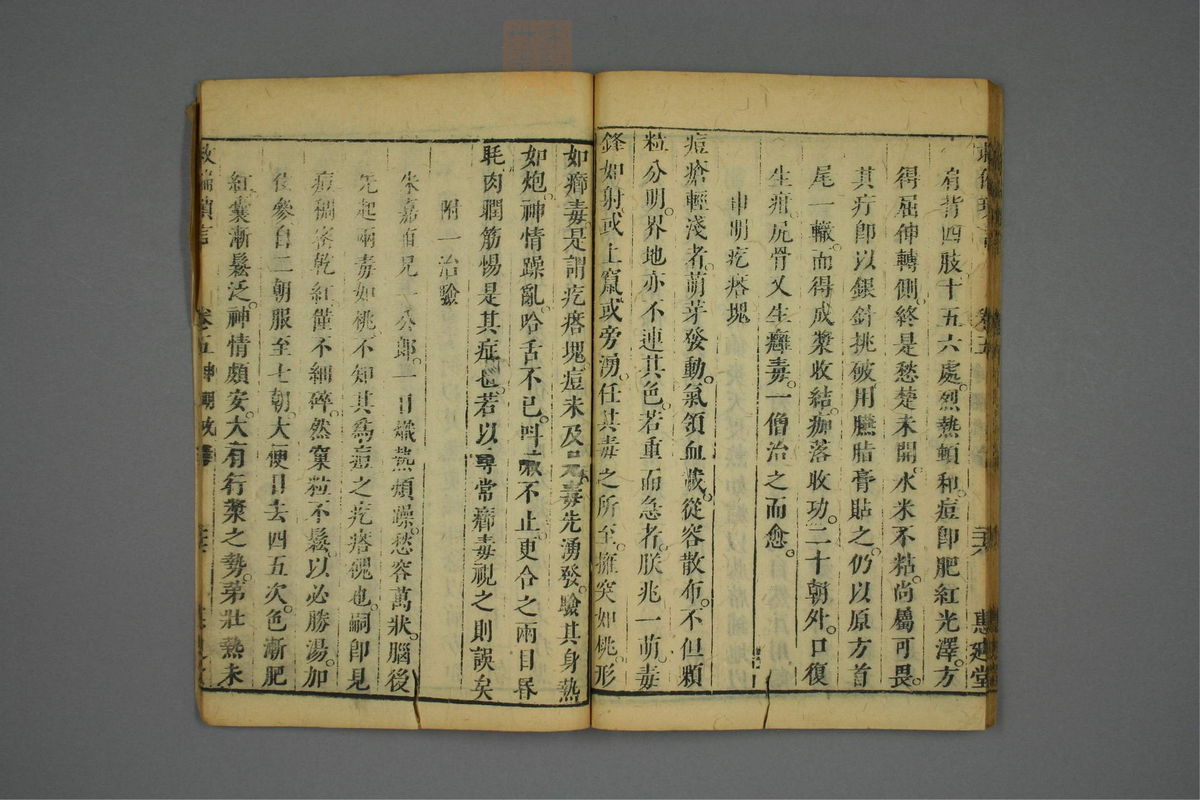 肩背四肢十五六處。烈熱頓和。痘卽肥紅光澤。方
得屈伸轉側。終是愁楚未開。水米不粘。尚屬可畏。
其疔卽以銀針挑破用臙脂膏貼之。仍以原方首
尾一轍。而得成漿收結。痂落收功。二十朝外。口復
生疳。尻骨又生癰毒。一僧治之而愈。
申明疙瘩塊
痘瘡輕淺者。萌芽發動。氣領血載。從容散布。不但顆
粒分明。界地亦不連其色。若重而急者。朕兆一萌。毒
鋒如射。或上竄或旁湧。任其毒之所至。擁突如桃。形
惠迪堂
如癤毒是謂疙瘩塊痘未及見。毒先湧發。驗其身熱
如炮。神情躁亂。哈舌不已。呌不止。更合之兩目昬
眊肉瞤筋惕是其症也。若以尋常癤毒視之則誤矣
附一治驗
朱嘉兄一公郎。一日熾熱煩躁。愁容萬狀。腦後
先起兩毒如桃。不知其爲痘之疙瘩塊也。嗣卽見
痘稠密乾紅。僅不細碎。然窠粒不鬆。以必勝湯。加
參自二朝服至七朝。大便日去四五次。色漸肥
紅囊漸鬆泛。神情頗安。大有行漿之勢。苐壯熱未
救偏瑣言
卷五